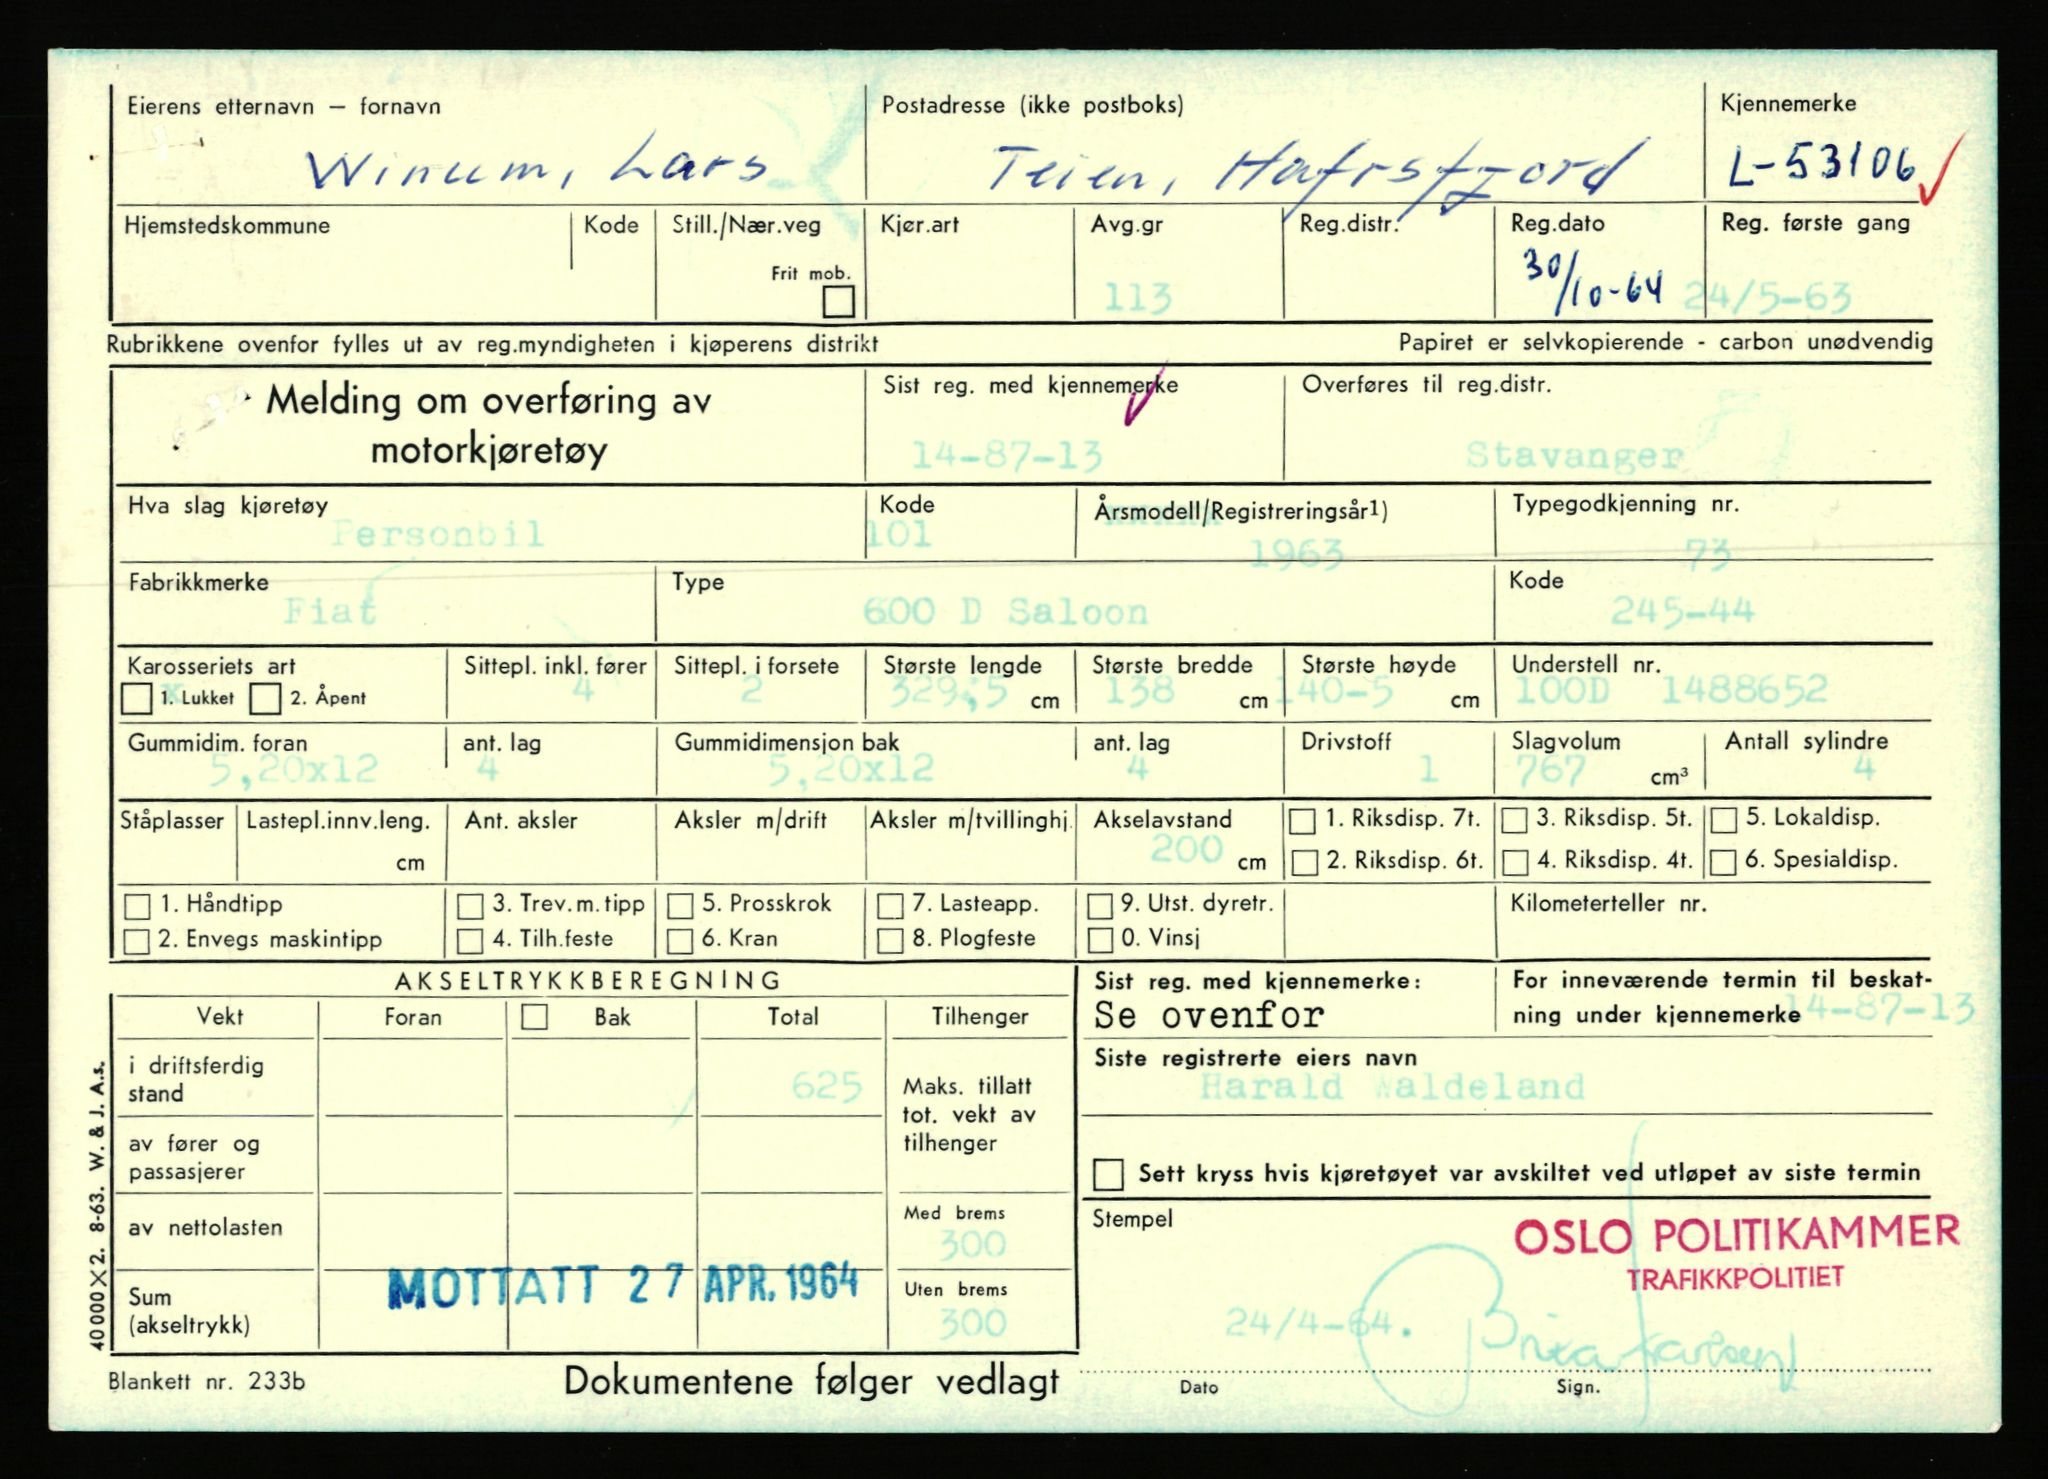 Eierens etternavn – fornavn
Postadresse (ikke postboks)
Kjennemerke
Winum, Lars
Teien, Hafrsfjord
L-53106
Hjemstedskommune
Kode
Still./Nær.veg
Kjør.art
Avg.gr
Reg.distr.
Reg.dato
Reg. første gang
Frit mob.
113
30/10-64
24/5-63
Rubrikkene ovenfor fylles ut av reg.myndigheten i kjøperens distrikt
Papiret er selvkopierende - carbon unødvendig
Melding om overføring av
motorkjøretøy
Sist reg. med kjennemerke
Overføres til reg.distr.
14-87-13
Stavanger
Hva slag kjøretøy
Kode
Årsmodell/Registreringsår1)
Typegodkjenning nr.
Personbil
101
1963
73
Fabrikkmerke
Type
Kode
Fiat
600 D Saloon
245-44
Karosseriets art
Sittepl. inkl. fører
Sittepl. i forsete
Største lengde
Største bredde
Største høyde
Understell nr.
x 1. Lukket
2. Åpent
4
2
329,5 cm
138 cm
140-5 cm
100D 1488652
Gummidim. foran
ant. lag
Gummidimensjon bak
ant. lag
Drivstoff
Slagvolum
Antall sylindre
5,20x12
4
5,20x12
4
1
767 cm³
4
Ståplasser
Lastepl.innv.leng.
Ant. aksler
Aksler m/drift
Aksler m/tvillinghj.
Akselavstand
1. Riksdisp. 7t.
3. Riksdisp. 5t.
5. Lokaldisp.
cm
200 cm
2. Riksdisp. 6t.
4. Riksdisp. 4t.
6. Spesialdisp.
1. Håndtipp
3. Trev. m. tipp
5. Prosskrok
7. Lasteapp.
9. Utst. dyretr.
Kilometerteller nr.
2. Envegs maskintipp
4. Tilh.feste
6. Kran
8. Plogfeste
0. Vinsj
AKSELTRYKKBEREGNING
Sist reg. med kjennemerke:
For inneværende termin til beskat-
Vekt
Foran
Bak
Total
Tilhenger
Se ovenfor
ning under kjennemerke 14-87-13
i driftsferdig
stand
625
Maks. tillatt
tot. vekt av
tilhenger
Siste registrerte eiers navn
Harald Waldeland
av fører og
passasjerer
Sett kryss hvis kjøretøyet var avskiltet ved utløpet av siste termin
av nettolasten
Med brems
300
Stempel
OSLO POLITIKAMMER
TRAFIKKPOLITIET
MOTTATT 27 APR. 1964
Sum
(akseltrykk)
Uten brems
300
24/4-64.
40 000 X 2. 8-63. W. & J. A.s.
Blankett nr. 233b
Dokumentene følger vedlagt
Dato
Sign.